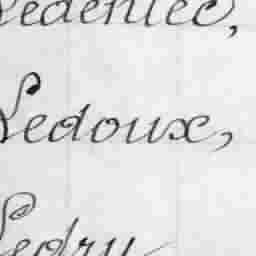 Ledentec,
Ledoux,
Ledru